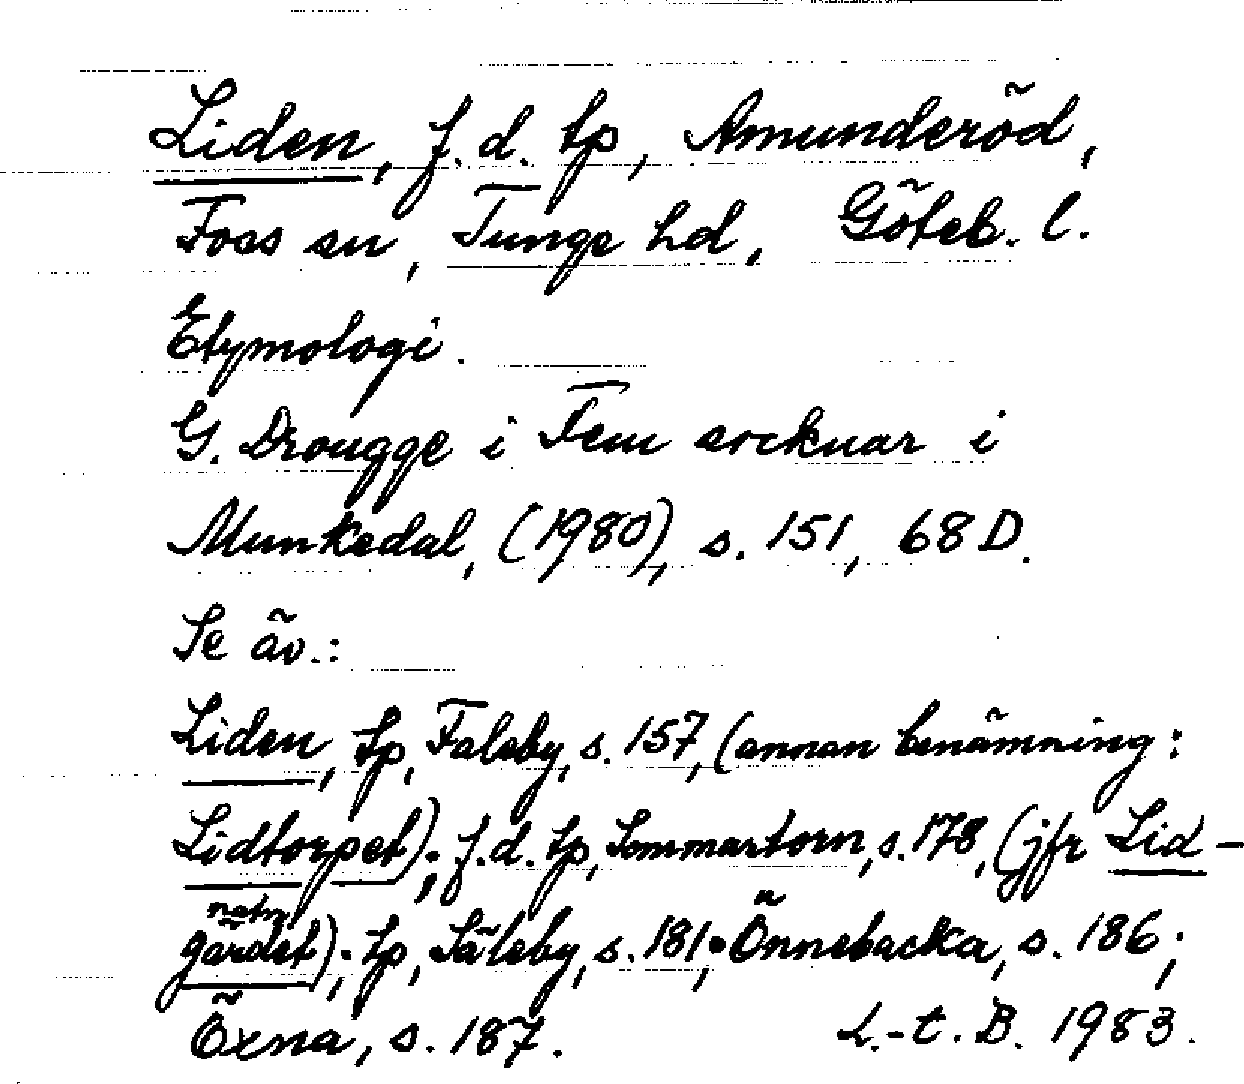 Liden, f.d. tp, Amunderöd,
Foss sn, Tunge hd, Göteb. l.
Etymologi.
G. Drougge i Fem socknar i
Munkedal, (1980), s. 151, 68 D.
Se äv.:
Liden, tp, Faleby, s. 157, (annan benämning:
Lidtorpet); f.d. tp, Sommartorn, s. 178, (jfr Lid-
gärdet); tp, Säleby, s. 181; Önnebacka, s. 186;
Öxna, s. 187. L.-t. B. 1983.